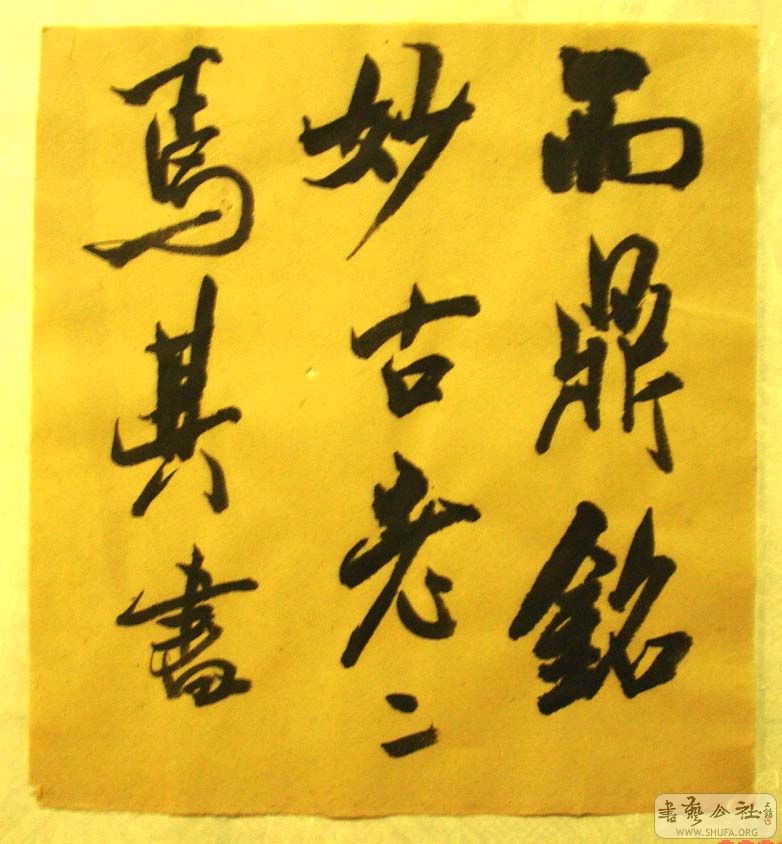 而鼎銘
妙古老二
焉其書
書藝公社
WWW.SHUFA.ORG